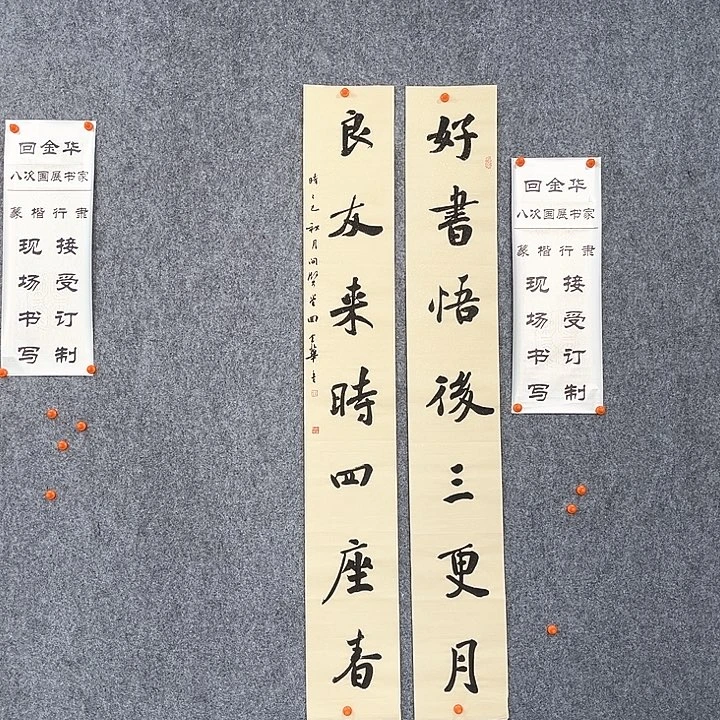 好書悟後三更月
良友来時四座春
回金华
八次国展书家
篆楷行隶
接受订制
现场书写
回金华
八次国展书家
篆楷行隶
接受订制
现场书写